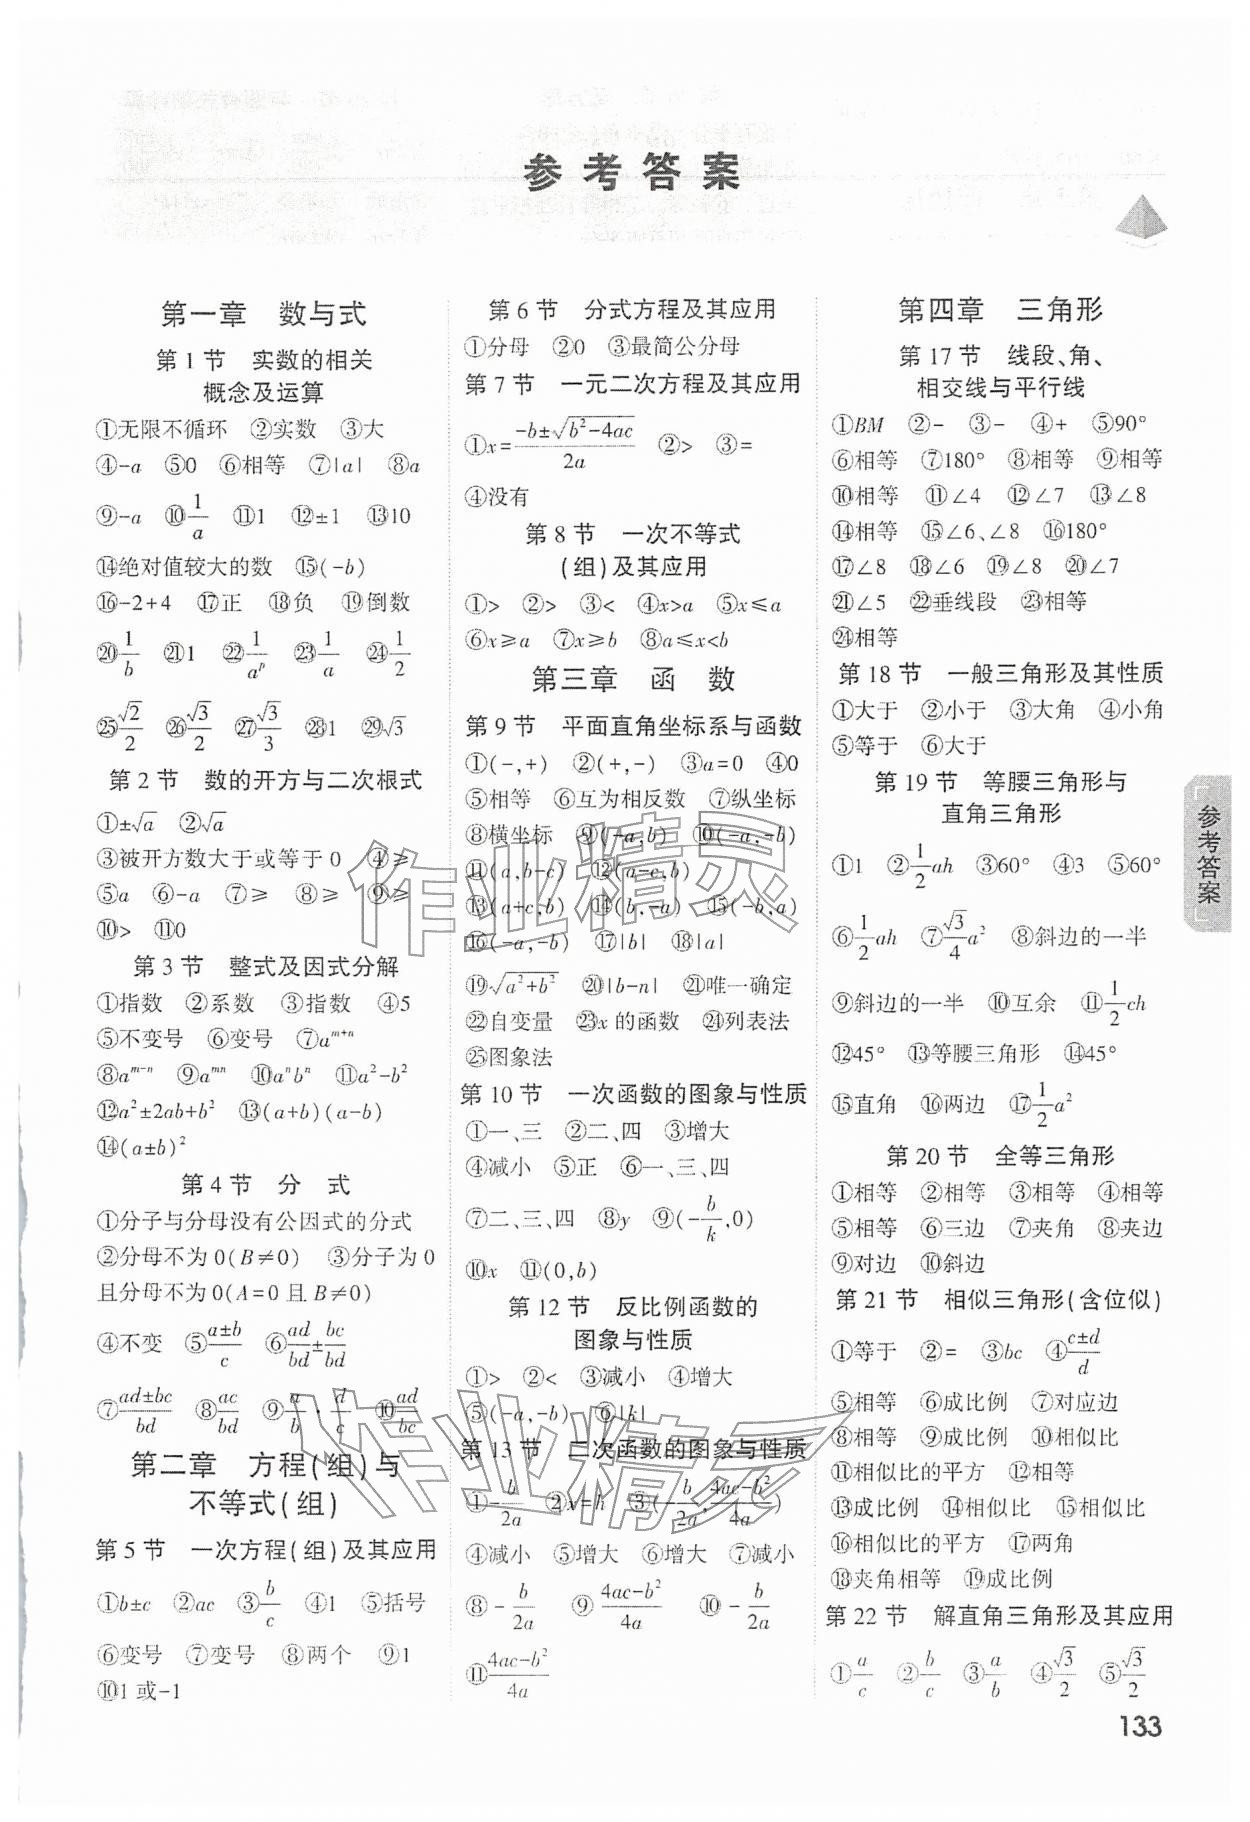 参考答案
第一章 数与式
第1节 实数的相关
概念及运算
①无限不循环 ②实数 ③大
④-a ⑤0 ⑥相等 ⑦|a| ⑧a
⑨-a ⑩1/a ⑪1 ⑫±1 ⑬10
⑭绝对值较大的数 ⑮(-b)
⑯-2+4 ⑰正 ⑱负 ⑲倒数
⑳1/b ㉑1 ㉒1/a^p ㉓1/a ㉔1/2
㉕√2/2 ㉖√3/2 ㉗√3/3 ㉘1 ㉙√3
第2节 数的开方与二次根式
①±√a ②√a
③被开方数大于或等于0 ④≥
⑤a ⑥-a ⑦≥ ⑧≥ ⑨≥
⑩> ⑪0
第3节 整式及因式分解
①指数 ②系数 ③指数 ④5
⑤不变号 ⑥变号 ⑦a^(m+n)
⑧a^(m-n) ⑨a^(mn) ⑩a^n b^n ⑪a²-b²
⑫a²±2ab+b² ⑬(a+b)(a-b)
⑭(a±b)²
第4节 分 式
①分子与分母没有公因式的分式
②分母不为0(B≠0) ③分子为0
且分母不为0(A=0且B≠0)
④不变 ⑤(a±b)/c ⑥ad/bd±bc/bd
⑦(ad±bc)/bd ⑧ac/bd ⑨a/b·d/c ⑩ad/bc
第二章 方程(组)与
不等式(组)
第5节 一次方程(组)及其应用
①b±c ②ac ③b/c ④1 ⑤括号
⑥变号 ⑦变号 ⑧两个 ⑨1
⑩1或-1
第6节 分式方程及其应用
①分母 ②0 ③最简公分母
第7节 一元二次方程及其应用
①x=(-b±√(b²-4ac))/2a ②> ③=
④没有
第8节 一次不等式
(组)及其应用
①> ②> ③< ④x>a ⑤x≤a
⑥x≥a ⑦x≥b ⑧a≤x<b
第三章 函 数
第9节 平面直角坐标系与函数
①(-,+) ②(+,-) ③a=0 ④0
⑤相等 ⑥互为相反数 ⑦纵坐标
⑧横坐标 ⑨(-a,b) ⑩(-a,-b)
⑪(a,b-c) ⑫(a-c,b)
⑬(a+c,b) ⑭(b,-a) ⑮(-b,a)
⑯(-a,-b) ⑰|b| ⑱|a|
⑲√(a²+b²) ⑳|b-n| ㉑唯一确定
㉒自变量 ㉓x的函数 ㉔列表法
㉕图象法
第10节 一次函数的图象与性质
①一、三 ②二、四 ③增大
④减小 ⑤正 ⑥一、三、四
⑦二、三、四 ⑧y ⑨(-b/k,0)
⑩x ⑪(0,b)
第12节 反比例函数的
图象与性质
①> ②< ③减小 ④增大
⑤(-a,-b) ⑥|k|
第13节 二次函数的图象与性质
①-b/2a ②x=h ③(-b/2a,(4ac-b²)/4a)
④减小 ⑤增大 ⑥增大 ⑦减小
⑧-b/2a ⑨(4ac-b²)/4a ⑩-b/2a
⑪(4ac-b²)/4a
第四章 三角形
第17节 线段、角、
相交线与平行线
①BM ②- ③- ④+ ⑤90°
⑥相等 ⑦180° ⑧相等 ⑨相等
⑩相等 ⑪∠4 ⑫∠7 ⑬∠8
⑭相等 ⑮∠6、∠8 ⑯180°
⑰∠8 ⑱∠6 ⑲∠8 ⑳∠7
㉑∠5 ㉒垂线段 ㉓相等
㉔相等
第18节 一般三角形及其性质
①大于 ②小于 ③大角 ④小角
⑤等于 ⑥大于
第19节 等腰三角形与
直角三角形
①1 ②1/2 ah ③60° ④3 ⑤60°
⑥1/2 ah ⑦√3/4 a² ⑧斜边的一半
⑨斜边的一半 ⑩互余 ⑪1/2 ch
⑫45° ⑬等腰三角形 ⑭45°
⑮直角 ⑯两边 ⑰1/2 a²
第20节 全等三角形
①相等 ②相等 ③相等 ④相等
⑤相等 ⑥三边 ⑦夹角 ⑧夹边
⑨对边 ⑩斜边
第21节 相似三角形(含位似)
①等于 ②= ③bc ④(c±d)/d
⑤相等 ⑥成比例 ⑦对应边
⑧相等 ⑨成比例 ⑩相似比
⑪相似比的平方 ⑫相等
⑬成比例 ⑭相似比 ⑮相似比
⑯相似比的平方 ⑰两角
⑱夹角相等 ⑲成比例
第22节 解直角三角形及其应用
①a/c ②b/c ③a/b ④√3/2 ⑤√3/2
参考答案
133
作业精灵
作业精灵